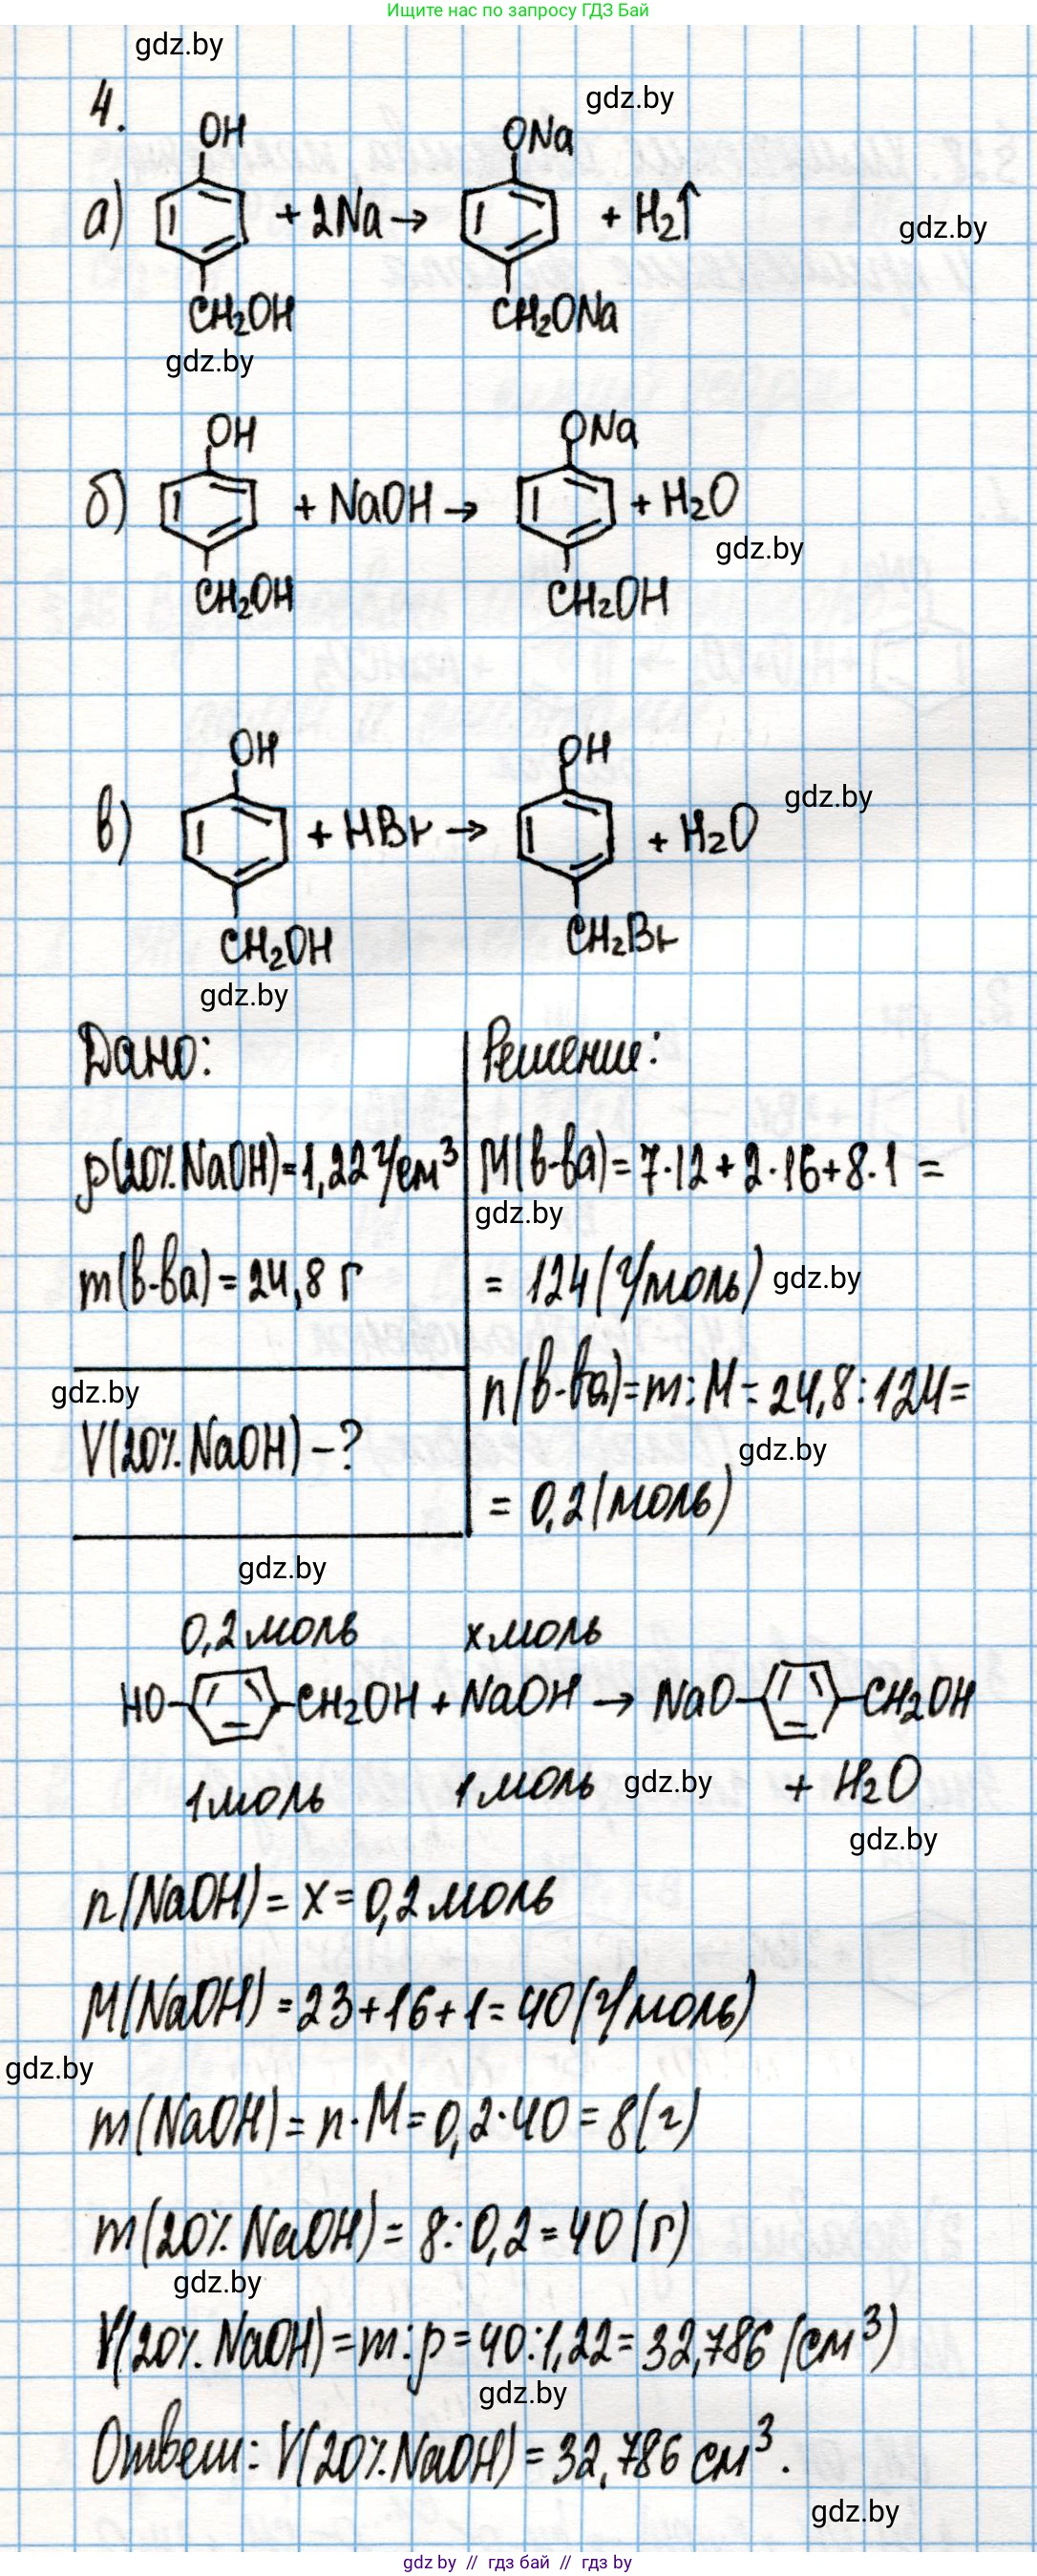 Ищите нас по запросу ГДЗ Бай
gdz.by
4.
gdz.by
OH
ONa
а)
+ 2Na →
+ H₂↑
gdz.by
CH₂OH
CH₂ONa
gdz.by
OH
ONa
б)
+ NaOH →
+ H₂O
gdz.by
CH₂OH
CH₂OH
OH
OH
gdz.by
в)
+ HBr →
+ H₂O
CH₂OH
CH₂Br
gdz.by
Дано:
ρ(20% NaOH) = 1,22 г/см³
m(в-ва) = 24,8 г
gdz.by
V(20% NaOH) – ?
Решение:
M(в-ва) = 7·12 + 2·16 + 8·1 =
gdz.by
= 124 (г/моль)
gdz.by
n(в-ва) = m : M = 24,8 : 124 =
gdz.by
= 0,2 (моль)
gdz.by
0,2 моль x моль
HO– –CH₂OH + NaOH → NaO– –CH₂OH
1 моль 1 моль gdz.by + H₂O
gdz.by
n(NaOH) = x = 0,2 моль
M(NaOH) = 23 + 16 + 1 = 40 (г/моль)
gdz.by
m(NaOH) = n · M = 0,2 · 40 = 8 (г)
m(20% NaOH) = 8 : 0,2 = 40 (г)
gdz.by
V(20% NaOH) = m : ρ = 40 : 1,22 = 32,786 (см³)
gdz.by
Ответ: V(20% NaOH) = 32,786 см³.
gdz.by
gdz by // гдз бай // гдз by